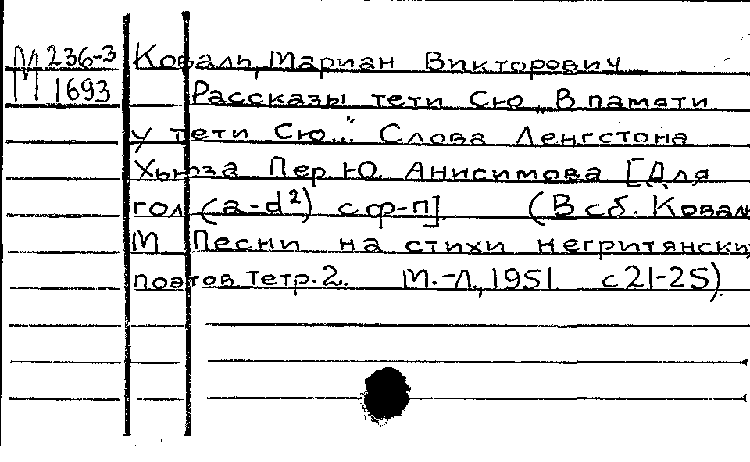 М 236-3 Коваль, Мариан Викторович
1693 Рассказы тети Сю „В памяти
у тети Сю..." Слова Ленгстона
Хьюза Пер. Ю. Анисимова [Для
гол (a-d²) с ф-п] (В сб. Коваль
М Песни на стихи негритянски
поэтов Тетр. 2. М.-Л., 1951 с 21-25)